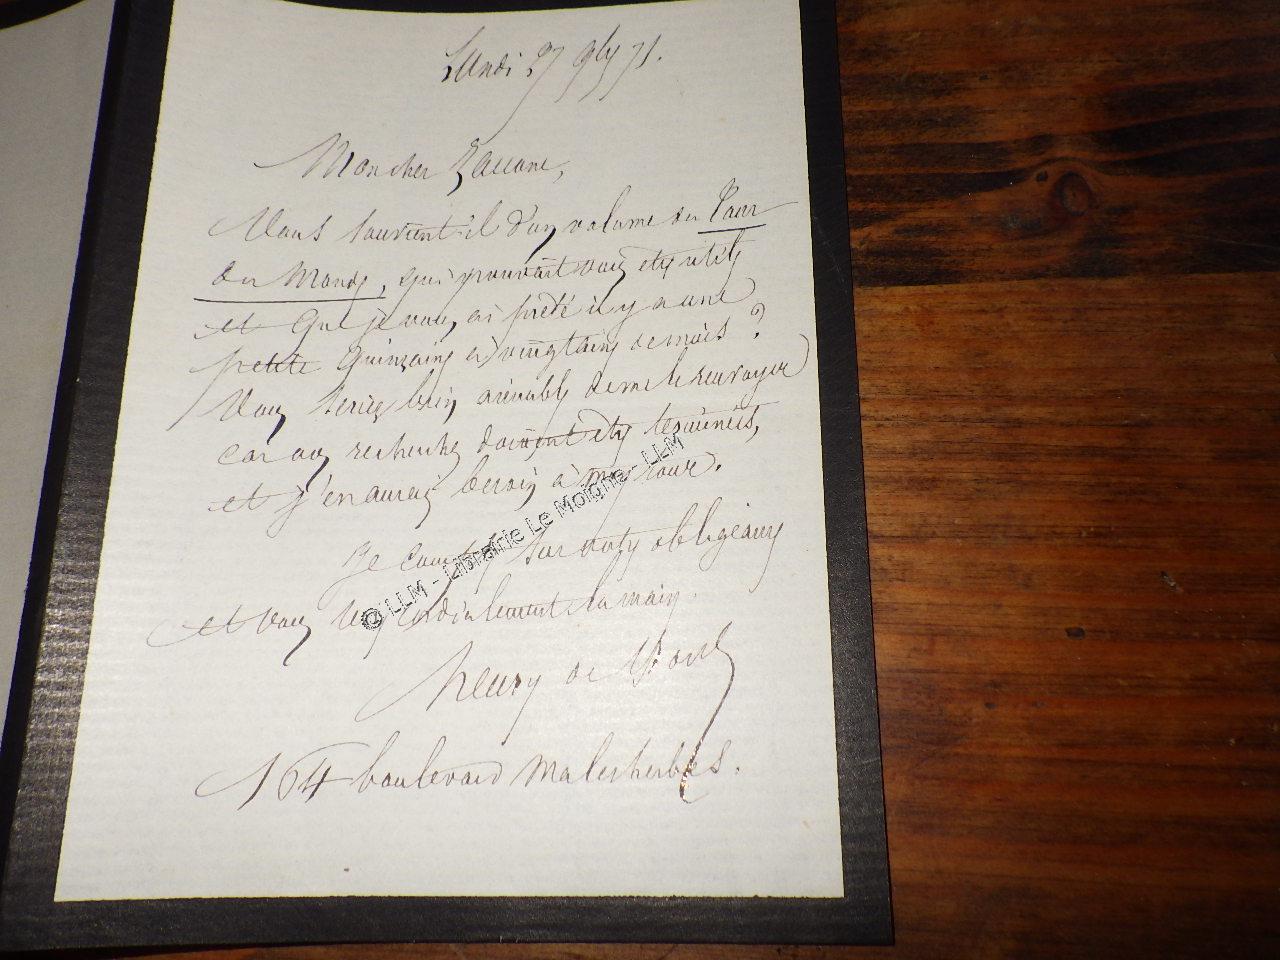 Lundi 27 9bre 71.
Mon cher Zaccone,
Vous souvient-il d'un volume du Tour
du Monde, qui pouvait vous être utile
et que je vous ai prêté il y a une
petite quinzaine ou vingtaine de mois ?
Vous seriez bien aimable de me le renvoyer
car vos recherches doivent être terminées,
et j'en aurais besoin à mon tour.
Je compte sur votre obligeance
et vous serre cordialement la main.
Henry de
164 boulevard Malesherbes.
© LLM - Librairie Le Moigne - LLM